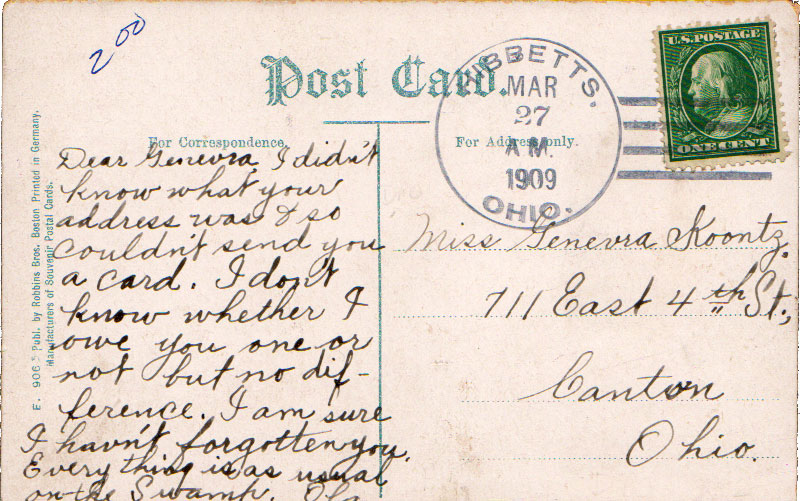 200
Post Card.
HIBBETTS.
MAR
27
A.M.
1909
OHIO.
U.S. POSTAGE
ONE CENT
For Correspondence.
For Address only.
E. 906. Publ. by Robbins Bros. Boston Printed in Germany.
Manufacturers of Souvenir Postal Cards.
Dear Genevra, I didn't
know what your
address was & so
couldn't send you
a card. I don't
know whether I
owe you one or
not but no dif-
ference. I am sure
I havn't forgotten you.
Everything is as usual
on the Swamp.
Miss Genevra Koontz,
711 East 4th St.,
Canton
Ohio.